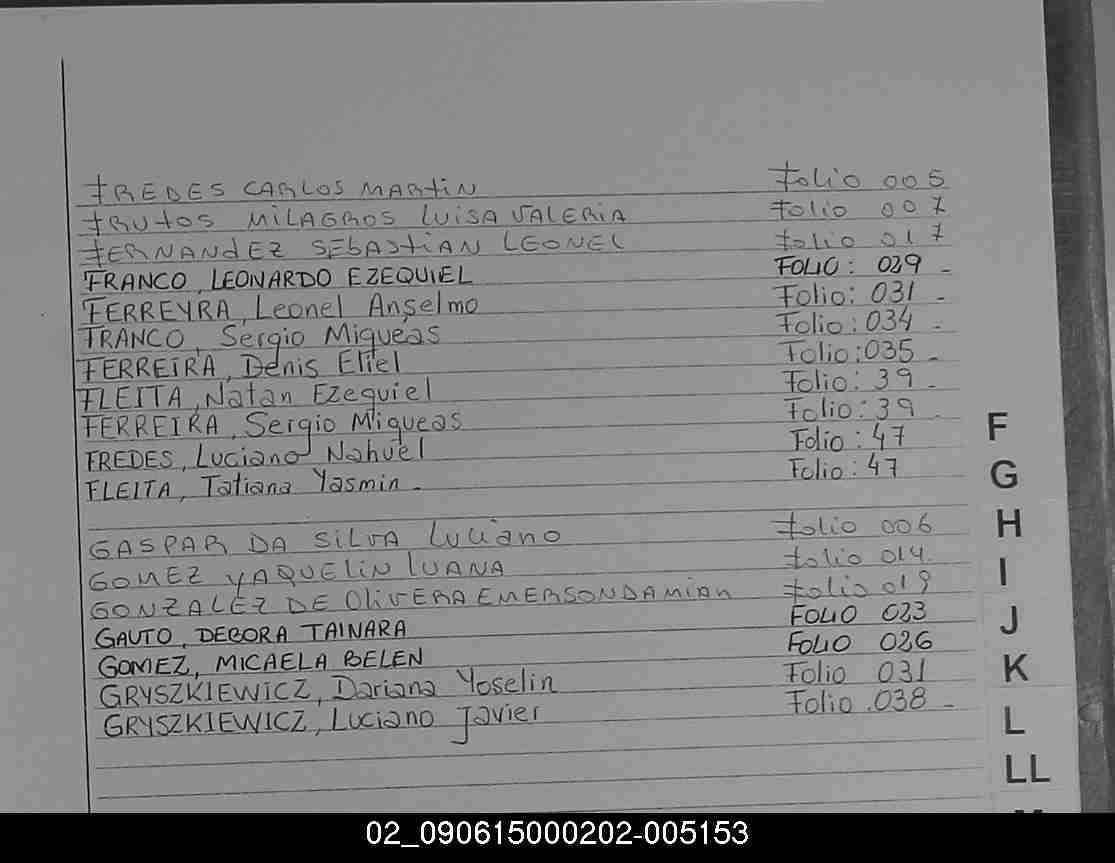 FREDES CARLOS MARTIN Folio 005
FRUTOS MILAGROS LUISA VALERIA Folio 007
FERNANDEZ SEBASTIAN LEONEL Folio 017
FRANCO, LEONARDO EZEQUIEL FOLIO: 029 -
FERREYRA, Leonel Anselmo Folio: 031 -
FRANCO, Sergio Miqueas Folio: 034 -
FERREIRA, Denis Eliel Folio: 035 -
FLEITA, Natan Ezequiel Folio: 39 -
FERREIRA, Sergio Miqueas Folio: 39 -
FREDES, Luciano Nahuel Folio: 47
FLEITA, Tatiana Yasmin - Folio: 47
GASPAR DA SILVA Luciano Folio 006
GOMEZ YAQUELIN LUANA Folio 014.
GONZALEZ DE OLIVERA EMERSON DAMIAN Folio 019
GAUTO, DEBORA TAINARA FOLIO 023
GOMEZ, MICAELA BELEN FOLIO 026
GRYSZKIEWICZ, Dariana Yoselin Folio 031
GRYSZKIEWICZ, Luciano Javier Folio .038 -
F
G
H
I
J
K
L
LL
02_090615000202-005153